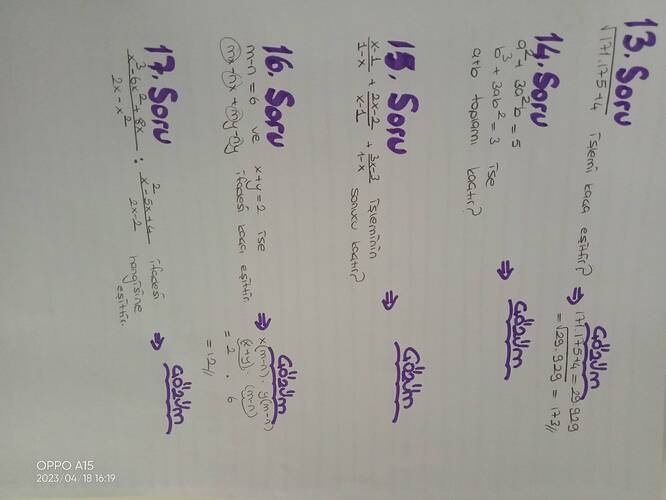 13. Soru
√171.175+4 işlemi kaça eşittir? ⇒
Çözüm
171.175+4 = 29929
= √29.929 = 173//
14. Soru
a³ + 3a²b = 5
b³ + 3ab² = 3 ise
a+b toplamı kaçtır?
⇒ Çözüm
15. Soru
x-1/1-x + 2x-2/x-1 + 3x-3/1-x işleminin
sonucu kaçtır?
⇒ Çözüm
16. Soru
m-n = 6 ve x+y = 2 ise
mx-nx+my-ny ifadesi kaça eşittir.
⇒ Çözüm
x(m-n) . y(m-n)
(x+y) . (m-n)
= 2 . 6
= 12//
17. Soru
x³-6x²+8x/2x-x² : x²-5x+4/2x-2 ifadesi
hangisine
eşittir.
⇒ Çözüm
OPPO A15
2023/04/18 16:19